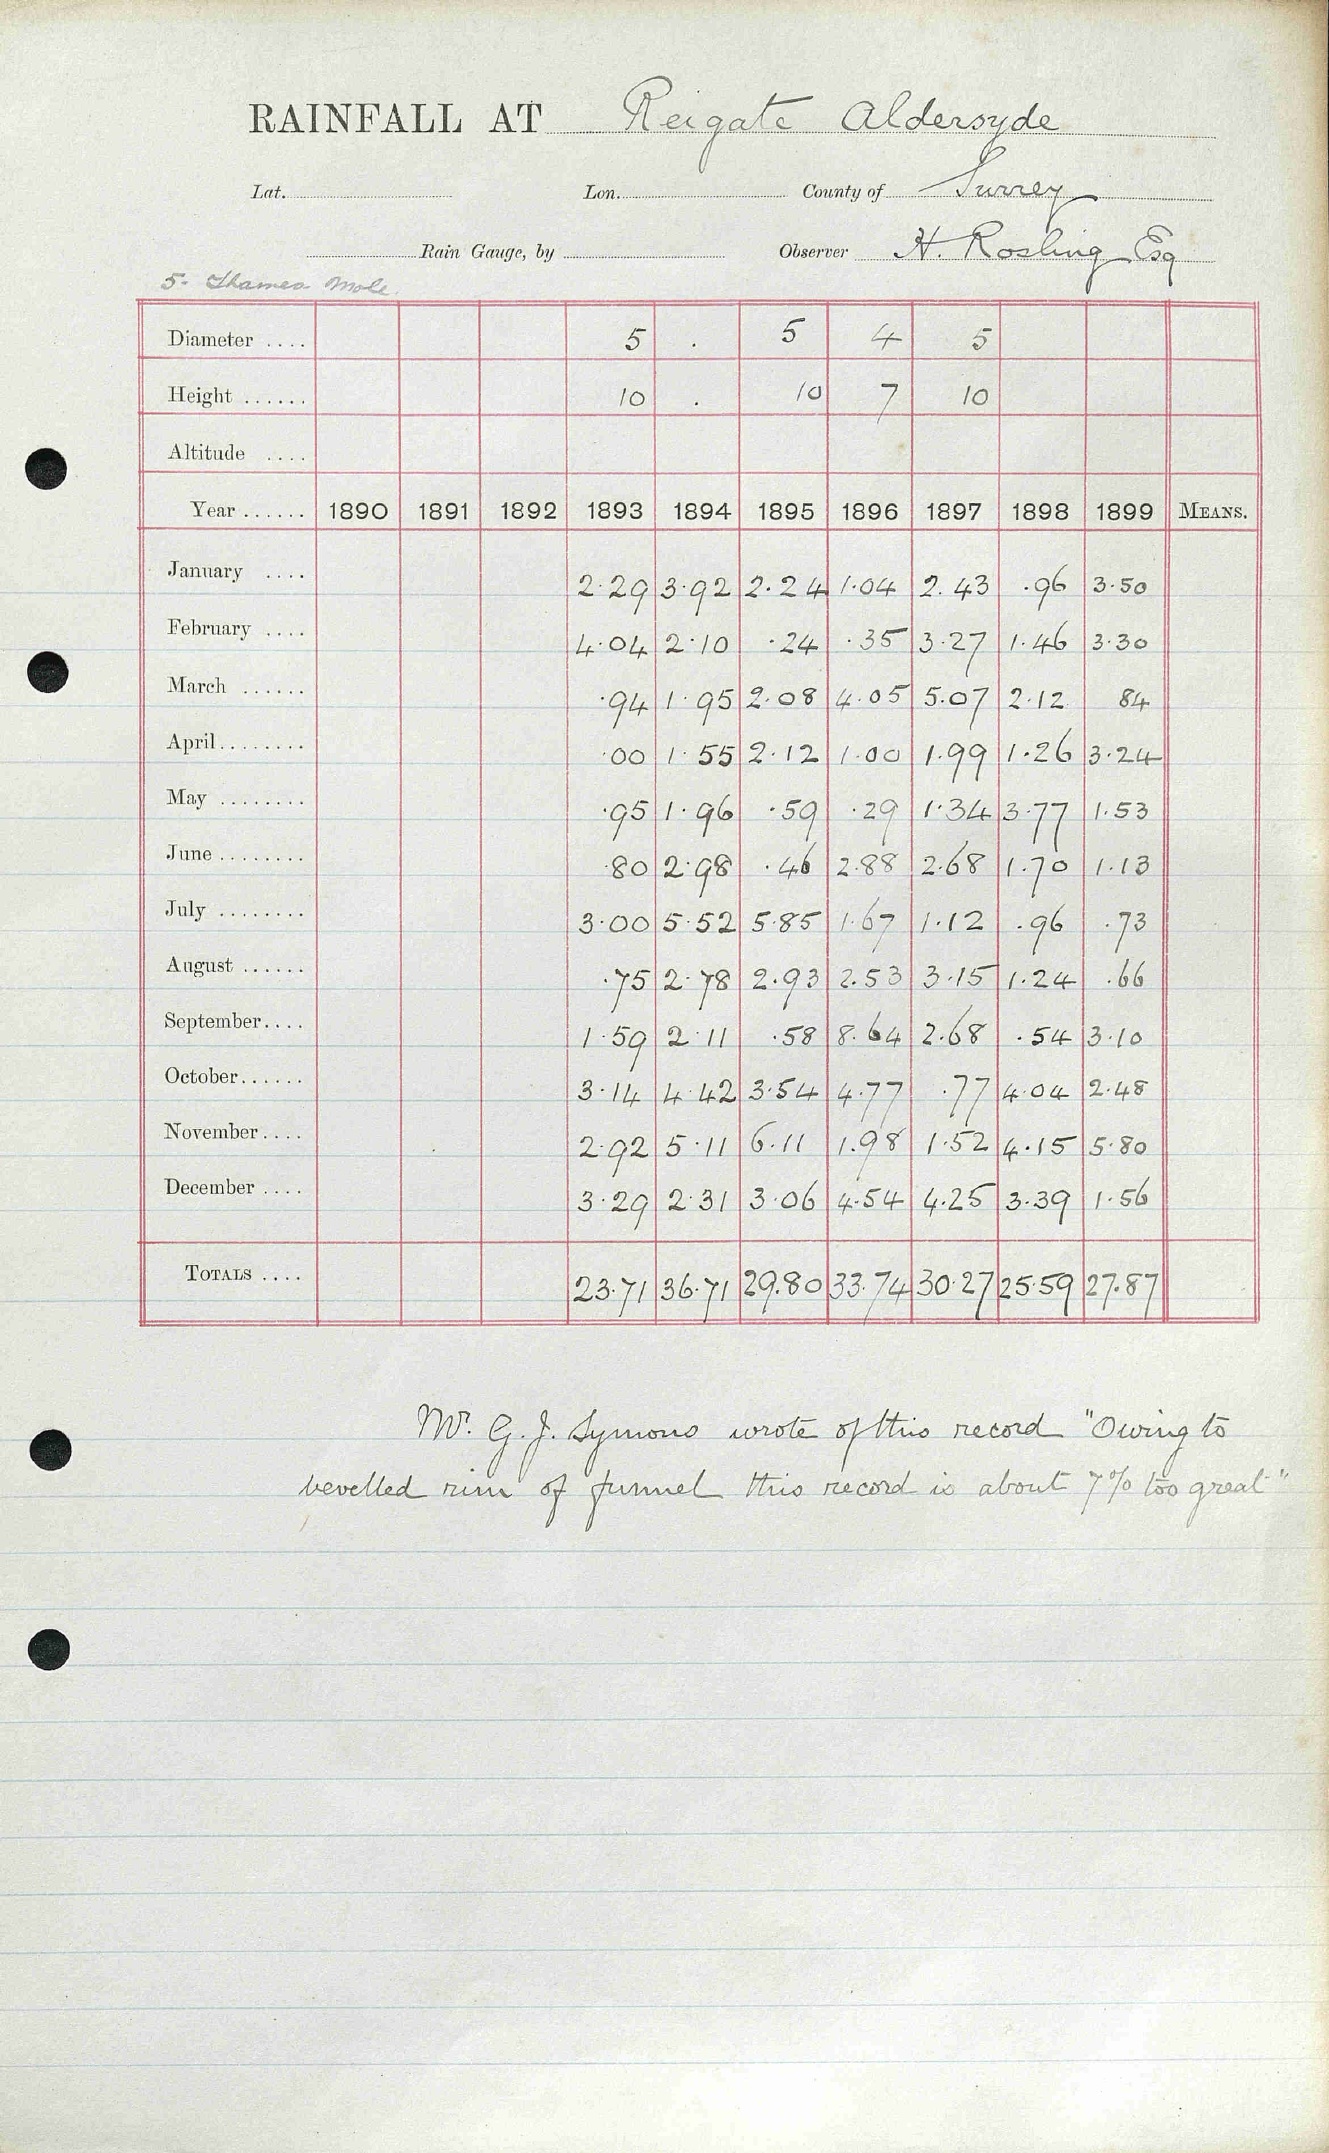 RAINFALL AT Reigate Aldersyde
Lat. Lon. County of Surrey
Rain Gauge, by Observer H. Rosling Esq
5. Thames Mole.
Diameter .... 5 . 5 4 5
Height ...... 10 . 10 7 10
Altitude ....
Year ...... 1890 1891 1892 1893 1894 1895 1896 1897 1898 1899 MEANS.
January .... 2.29 3.92 2.24 1.04 2.43 .96 3.50
February .... 4.04 2.10 .24 .35 3.27 1.46 3.30
March ...... .94 1.95 2.08 4.05 5.07 2.12 84
April ........ .00 1.55 2.12 1.00 1.99 1.26 3.24
May ........ .95 1.96 .59 .29 1.34 3.77 1.53
June ........ .80 2.98 .46 2.88 2.68 1.70 1.13
July ........ 3.00 5.52 5.85 1.67 1.12 .96 .73
August ...... .75 2.78 2.93 2.53 3.15 1.24 .66
September .... 1.59 2.11 .58 8.64 2.68 .54 3.10
October ...... 3.14 4.42 3.54 4.77 .77 4.04 2.48
November .... 2.92 5.11 6.11 1.98 1.52 4.15 5.80
December .... 3.29 2.31 3.06 4.54 4.25 3.39 1.56
TOTALS .... 23.71 36.71 29.80 33.74 30.27 25.59 27.87
Mr. G. J. Symons wrote of this record "Owing to
bevelled rim of funnel this record is about 7% too great"